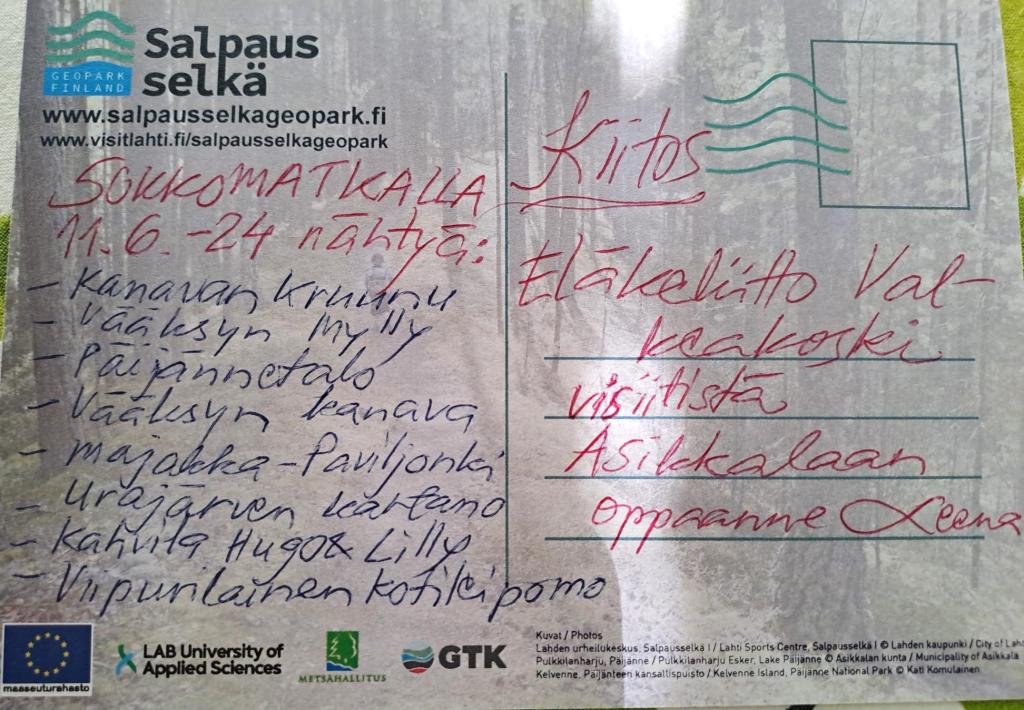 Salpaus
selkä
GEOPARK
FINLAND
www.salpausselkageopark.fi
www.visitlahti.fi/salpausselkageopark
SOKKOMATKALLA
11.6.-24 nähtyä:
- Kanavan Kruunu
- Vääksyn Mylly
- Päijännetalo
- Vääksyn kanava
- majakka-Paviljonki
- Urajärven kartano
- Kahvila Hugo & Lilly
- Viipurilainen kotileipomo
Kiitos
Eläkeliitto Val-
keakoski
visiitistä
Asikkalaan
oppaanne Leena
maaseuturahasto
LAB University of
Applied Sciences
METSÄHALLITUS
GTK
Kuvat / Photos
Lahden urheilukeskus, Salpausselkä I / Lahti Sports Centre, Salpausselkä I © Lahden kaupunki / City of Lah
Pulkkilanharju, Päijänne / Pulkkilanharju Esker, Lake Päijänne © Asikkalan kunta / Municipality of Asikkala
Kelvenne, Päijänteen kansallispuisto / Kelvenne Island, Päijänne National Park © Kati Komulainen